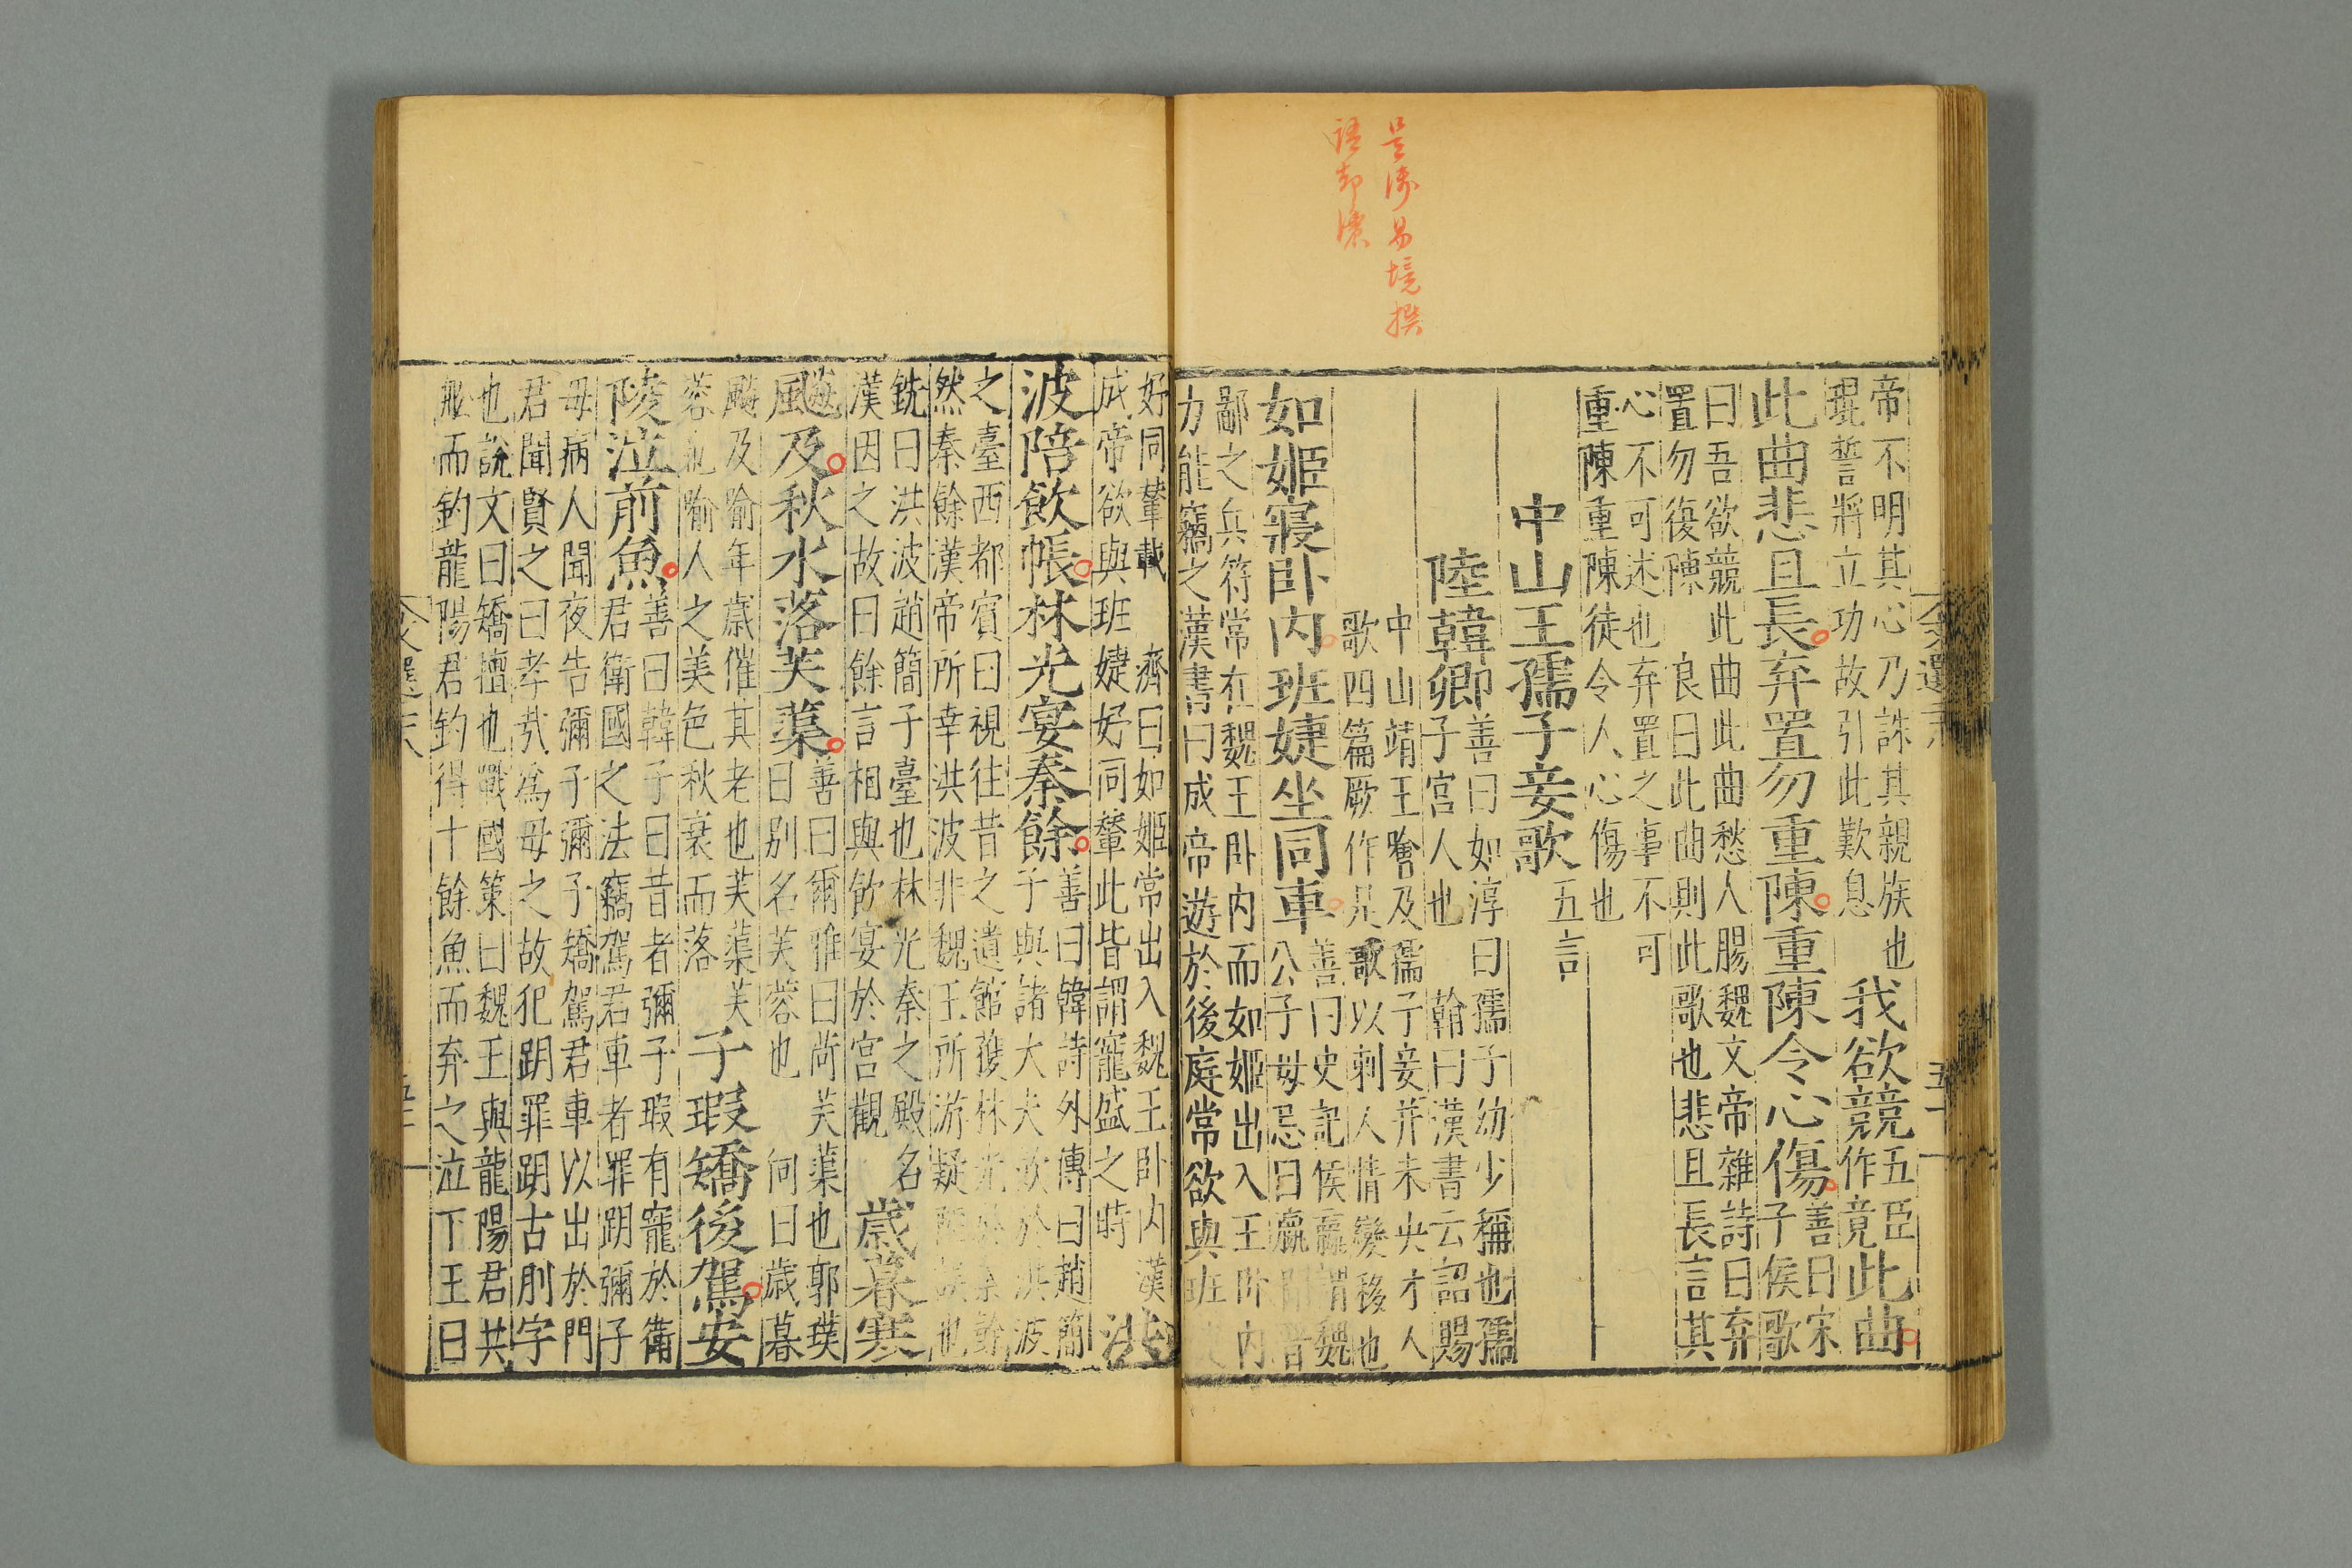 帝不明其心乃誅其親族也
琨誓將立功故引此歎息
我欲競
五臣
作竟
此曲
此曲悲且長弃置勿重陳重陳令心傷
善曰宋
子侯歌
曰吾欲競此曲此曲愁人腸魏文帝雜詩曰弃
置勿復陳 良曰此曲則此歌也悲且長言其
心不可述也弃置之事不可
重陳重陳徒令人心傷也
中山王孺子妾歌
五言
陸韓卿
善曰如淳曰孺子幼少稱也孺
子宫人也 翰曰漢書云詔賜
中山靖王噲及孺子妾并未央才人
歌四篇厥作是歌以刺人情變移也
如姬寢卧内班婕坐同車
善曰史記侯嬴謂魏
公子毋忌曰嬴聞晉
鄙之兵符常在魏王卧内而如姬出入王卧内
力能竊之漢書曰成帝遊於後庭常欲與班
好同輦載 濟曰如姬常出入魏王卧内漢
成帝欲與班婕妤同輦此皆謂寵盛之時
洪
波陪飲帳林光宴秦餘
善曰韓詩外傳曰趙簡
子與諸大夫飲於洪波
之臺西都賓曰視往昔之遺館獲林光於秦餘
然秦餘漢帝所幸洪波非魏王所游疑陸誤也
銑曰洪波趙簡子臺也林光秦之殿名
漢因之故曰餘言相與飲宴於宫觀
歲暮寒
飈及秋水落芙蕖
善曰爾雅曰荷芙蕖也郭璞
曰别名芙蓉也 向曰歲暮
飈及喻年歲催其老也芙蕖芙
蓉也喻人之美色秋衰而落
子瑕矯後駕安
陵泣前魚
善曰韓子曰昔者彌子瑕有寵於衛
君衛國之法竊駕君車者罪刖彌子
母病人聞夜告彌子彌子矯駕君車以出於門
君聞賢之曰孝哉爲母之故犯刖罪刖古刖字
也說文曰矯擅也戰國策曰魏王與龍陽君共
船而釣龍陽君釣得十餘魚而弃之泣下王曰